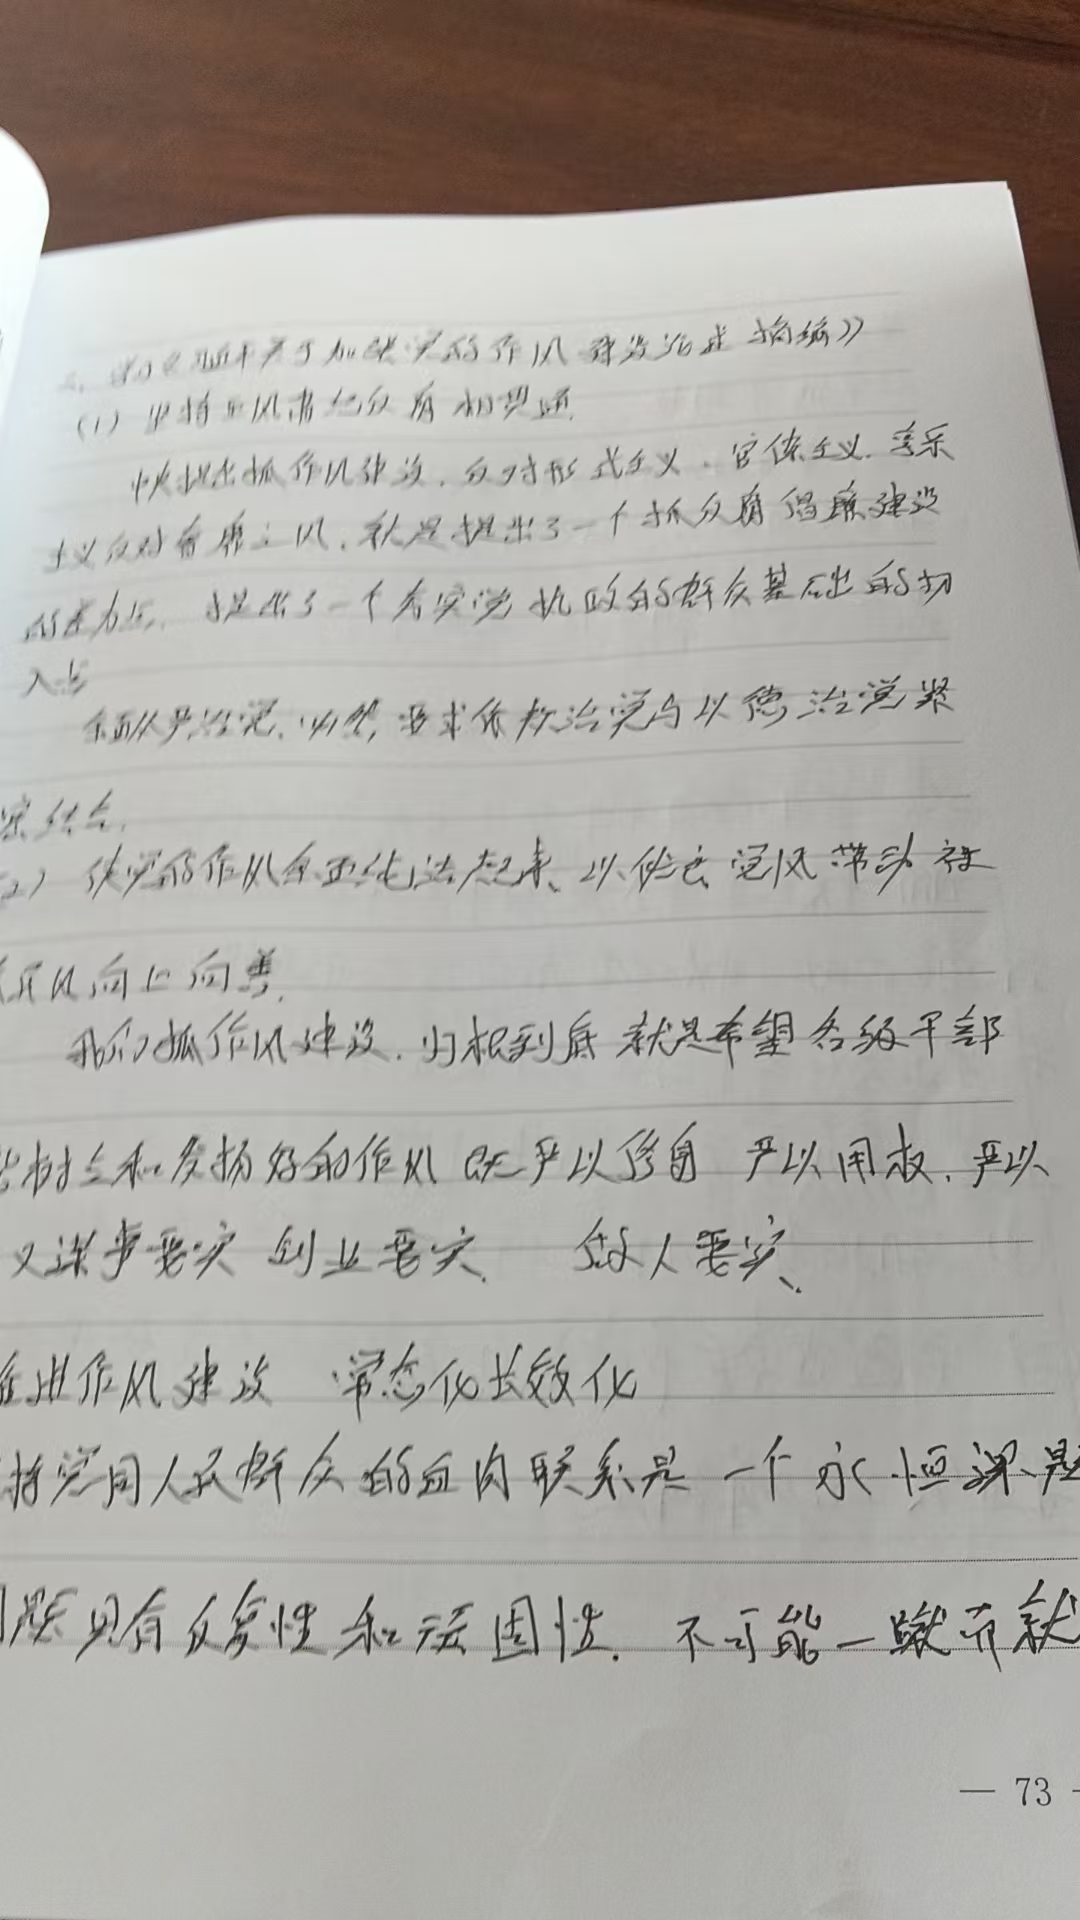 关于加强党的作风建设论述摘编》
(1) 坚持正风肃纪反腐相贯通.
中央提出抓作风建设,反对形式主义、官僚主义.享乐
主义反对奢靡之风,就是提出了一个抓反腐倡廉建设
的着力点,提出了一个夯实党执政的群众基础的切
入点
全面从严治党,必然要求依规治党与以德治党紧
密结合.
2) 使党的作风全面纯洁起来、以优良党风带动社
风向上向善.
我们抓作风建设.归根到底就是希望各级干部
树立和发扬好的作风 既严以修身 严以用权、严以
又谋事要实 创业要实、 做人要实、
作风建设 常态化长效化
持党同人民群众的血肉联系是一个永恒课题
题具有反复性和顽固性.不可能一蹴而就
— 73